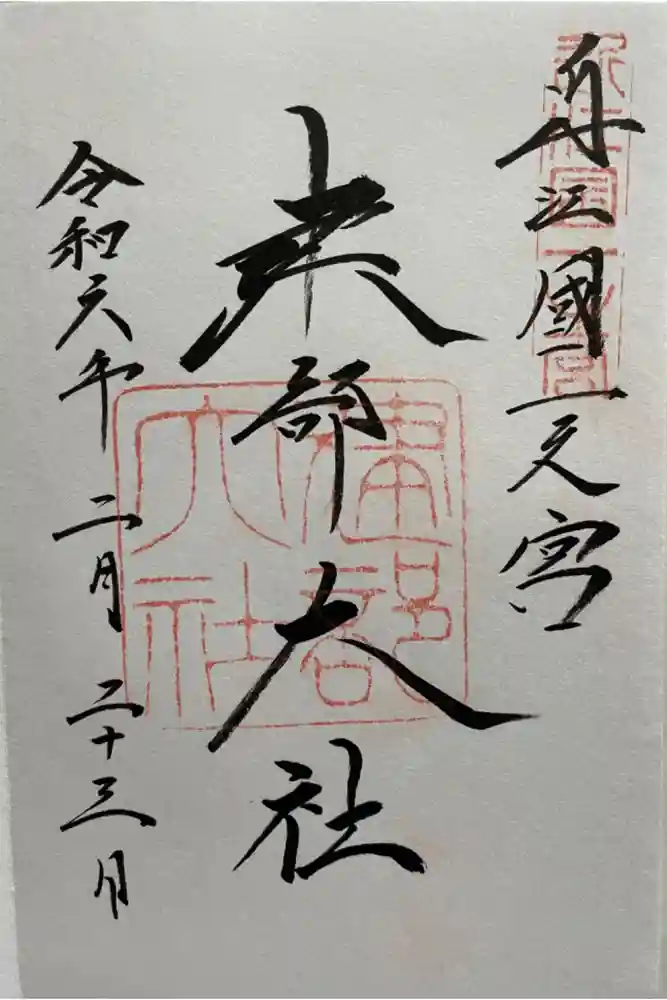 近江國一之宮
建部大社
令和六年二月二十三日
建部
大社